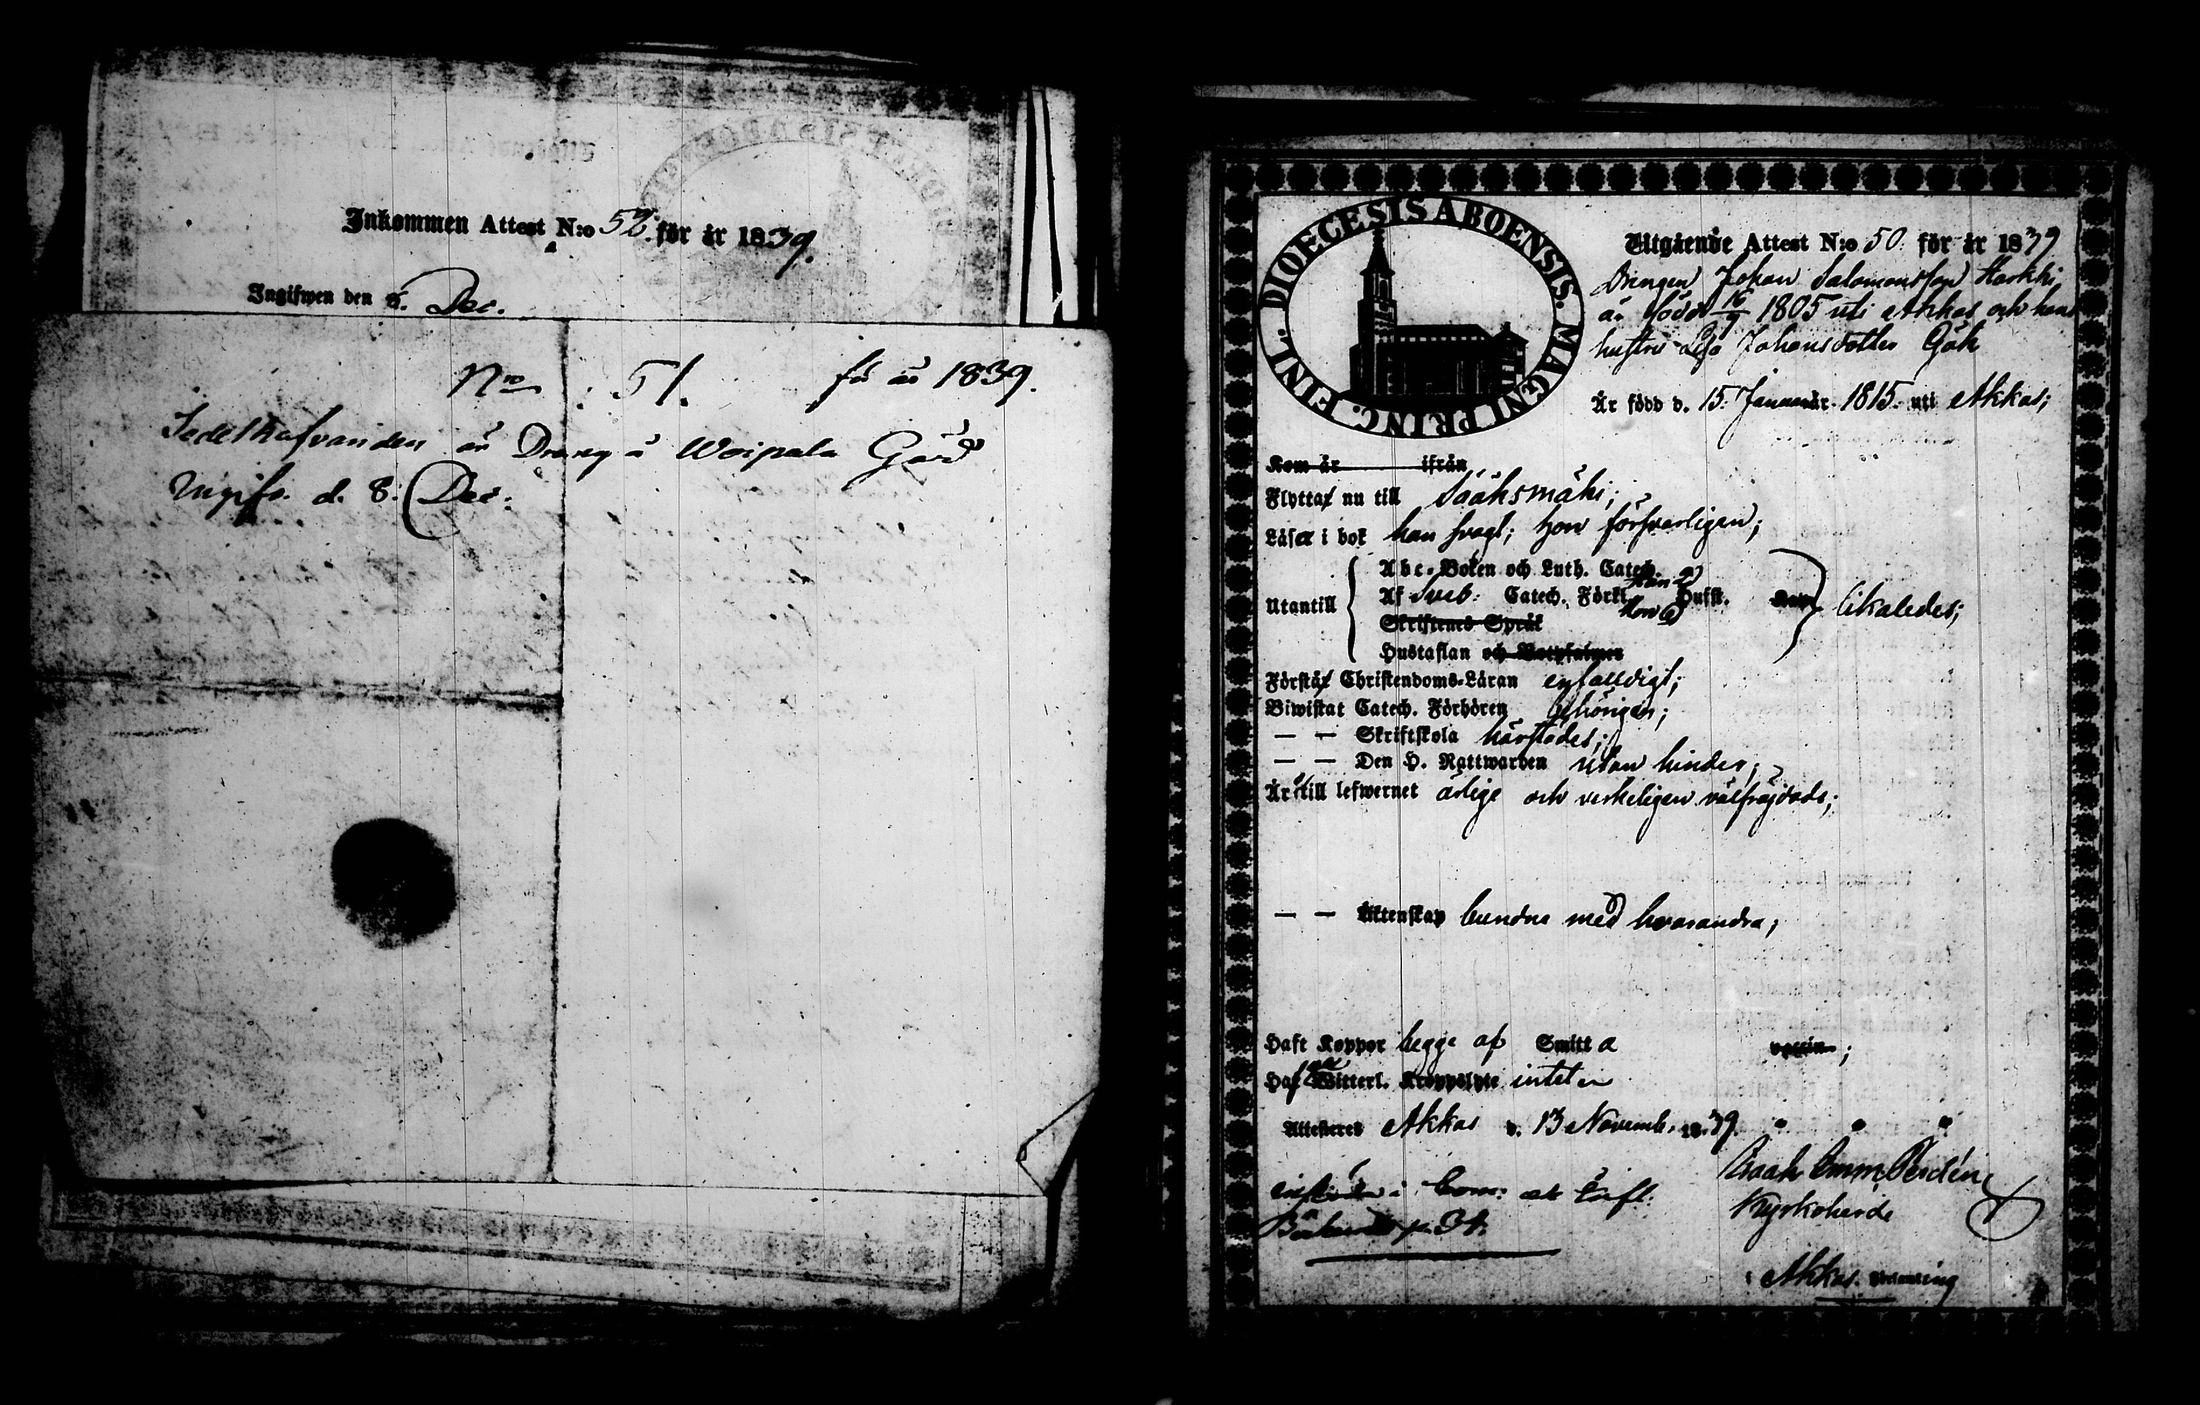 Inkommen Attest N:o 52. för år 1839.
Ingifwen den 8. Dec.
Nro 51. för år 1839.
Sedelhafvanden är Dräng å Woipala Gård
Ingifv. d. 8. Dec:
FINL. DIOECESIS ABOENSIS. MAGNI PRINC.
Utgående Attest N:o 50 för år 1839
Drengen Johan Salomonsson Harkki
är född 16/9 1805 uti Akkas och hans
hustru Johansdotter Gök
Är född d. 15. Januar. 1815. uti Akkas;
Kom år ifrån
Flytta nu till Sääksmäki;
Läsa i bok han svagt; hon försvarligen;
Utantill
Abc-Boken och Luth. Catech.
Af Sveb: Catech. Förkl. Han 2 Hufst.
Hon 6
Skriftenes Språk
Hustaflan och Botpsalmer
likaledes;
Förstå Christendoms-Läran enfaldigt;
Biwistat Catech. Förhören behörigen;
— — Skriftskola härstädes;
— — Den H. Nattwarden utan hinder;
Är till lefwernet ärlige och verkeligen välfrägdade;
— — Äktenskap bundne med hvarandra;
Haft Koppor begge af Smitta vaccin ;
Witterl. Kroppslyte intet
Attesteres Akkas d. 13 Novemb. 1839.
Kyrkoherde
i Com:
p. 34.
i Akkas. Församling